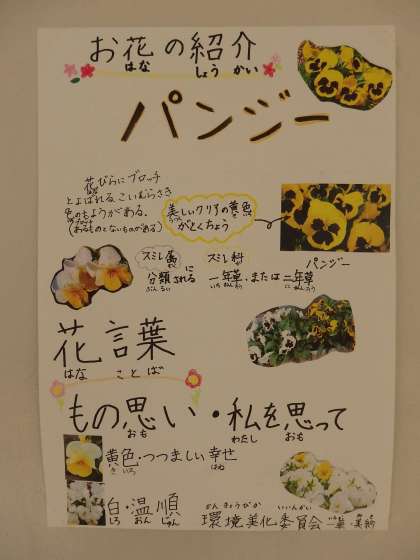 お花の紹介
はな しょうかい
パンジー
花びらにブロッチ
とよばれる、こいむらさき
色のもようがある。
(あるものとないものがある)
美しいクリアの黄色
がとくちょう
パンジー
スミレ属に スミレ科
分類される 一年草、または二年草
ぶんるい いちねんそう にねんそう
花言葉
はなことば
もの思い・私を思って
おも わたし おも
黄色・つつましい幸せ
きいろ
白・温順
しろ おんじゅん
かんきょうびか いいんかい
環境美化委員会